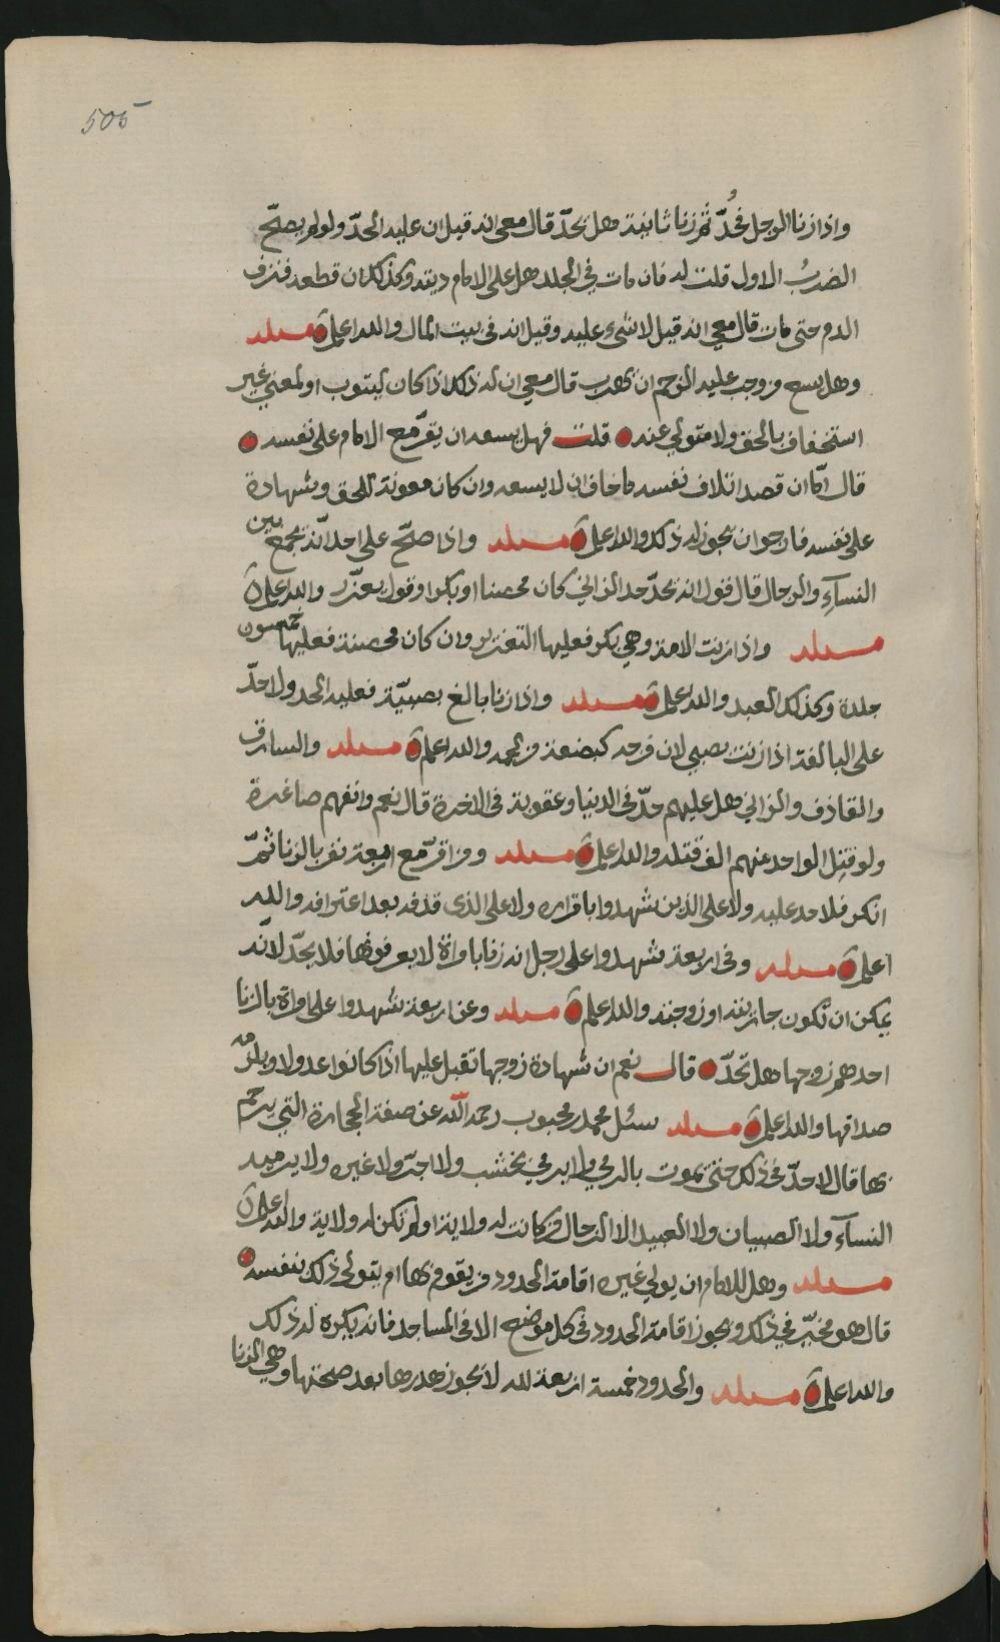 505
واذا زنا الرجل فحُدّ ثم زنا ثانية هل يحدّ قال معي انه قيل ان عليه الحدّ ولو لم يصحّ
الضربُ الاول قلت له فان مات في الجلد هل على الامام ديته وكذلك ان قطعه فنزف
الدم حتى مات قال معي انه قيل لا شيء عليه وقيل انه في بيت المال والله اعلم مسئلة
وهل يسع من وجب عليه الرجم ان يهرب قال معي ان له ذلك اذا كان ليتوب او لمعنى غير
استخفاف بالحق ولا متولي عنه قلت فهل يسعه ان يقرّ مع الامام على نفسه
قال امّا ان قصد اتلاف نفسه فاخاف ان لا يسعه وان كان معونة للحق وشهادة
على نفسه فارجو ان يجوز له ذلك والله اعلم مسئلة واذا صحّ على احد انّه يجمع بين
النسآءِ والرجال قال قول انه يحدّ حد الزاني كان محصنا او بكرا وقول يعزّر والله اعلم
مسئلة واذا زنت الامة وهي بكر فعليها التعزير وان كان محصنة فعليها خمسون
جلدة وكذلك العبد والله اعلم مسئلة واذا زنا بالغ بصبيّة فعليه الحد ولا حدّ
على البالغة اذا زنت بصبي لان فرجه كبضعة من لحمه والله اعلم مسئلة والسارق
والقاذف والزاني هل عليهم حدّ في الدنيا وعقوبة في الاخرة قال نعم وانفهم صاغرة
ولو قتِل الواحد منهم الف قتله والله اعلم مسئلة ومن اقرّ مع اربعة نفر بالزنا ثمّ
انكر فلا حد عليه ولا على الذين شهدوا باقراره ولا على الذي قذفه بعد اعترافه والله
اعلم مسئلة وفي اربعة شهدوا على رجل انه زنا بامراة لا يعرفونها فلا يحدّ لانّه
يمكن ان تكون جاريته او زوجته والله اعلم مسئلة وعن اربعة شهدوا على امراة بالزنا
احدهم زوجها هل تحدّ قال نعم ان شهادة زوجها تقبل عليها اذا كانوا عدولا ويلزمه
صداقها والله اعلم مسئلة سئل محمد بن محبوب رحمه الله عن صفة الحجارة التي يرجم
بها قال لا حدّ في ذلك حتى يموت بالرمي ولا يرمي بخشب ولا اجرّ ولا غيره ولا يرميه
النسآء ولا الصبيان ولا العبيد الا الرجال من كانت له ولاية او لم تكن له ولاية والله اعلم
مسئلة وهل للامام ان يولي غيره اقامة الحدود من يقوم بها ام يتولى ذلك بنفسه
قال هو مخيّر في ذلك ويجوز اقامة الحدود في كل موضع الا في المساجد فانه يكره له ذلك
والله اعلم مسئلة والحدود خمسة اربعة لله لا يجوز هدرها بعد صحتها وهي الزنا